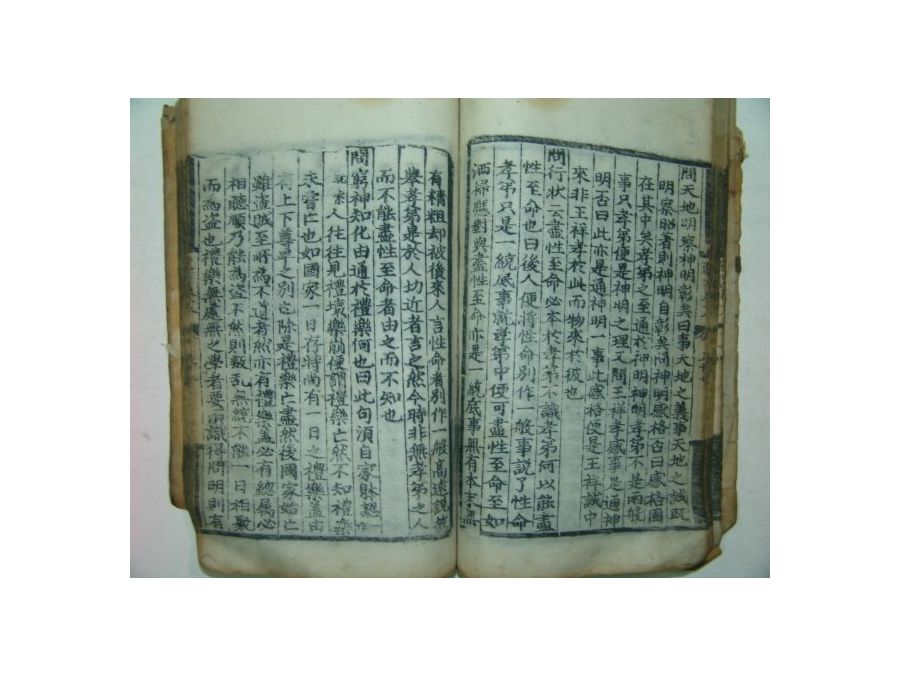 問天地明察神明彰矣曰事天地之義事天地之誠旣
明察昭著則神明自彰矣問神明感格否曰感格固
在其中矣孝弟之至通於神明神明孝弟不是兩般
事只孝弟便是神明之理又問王祥孝感事是通神
明否曰此亦是通神明一事此感格便是王祥誠中
來非王祥孝於此而物來於彼也
問行狀云盡性至命必本於孝弟不識孝弟何以能盡
性至命也曰後人便將性命別作一般事說了性命
孝弟只是一統底事就孝弟中便可盡性至命至如
洒掃應對與盡性至命亦是一統底事無有本末無
有精粗却被後來人言性命者別作一般高遠說故
擧孝弟是於人切近者言之然今時非無孝弟之人
而不能盡性至命者由之而不知也
問窮神知化由通於禮樂何也曰此句須自家體認
人往往見禮壞樂崩便謂禮樂亡然不知禮樂
未嘗亡也如國家一日存時尚有一日之禮樂盖由
有上下尊卑之別也除是禮樂亡盡然後國家始亡
雖盜賊至所爲不道者然亦有禮樂盖必有總屬必
相聽順乃能爲盜不然則叛乱無統不能一日相聚
而爲盜也禮樂無處無之學者要須識得問明則有